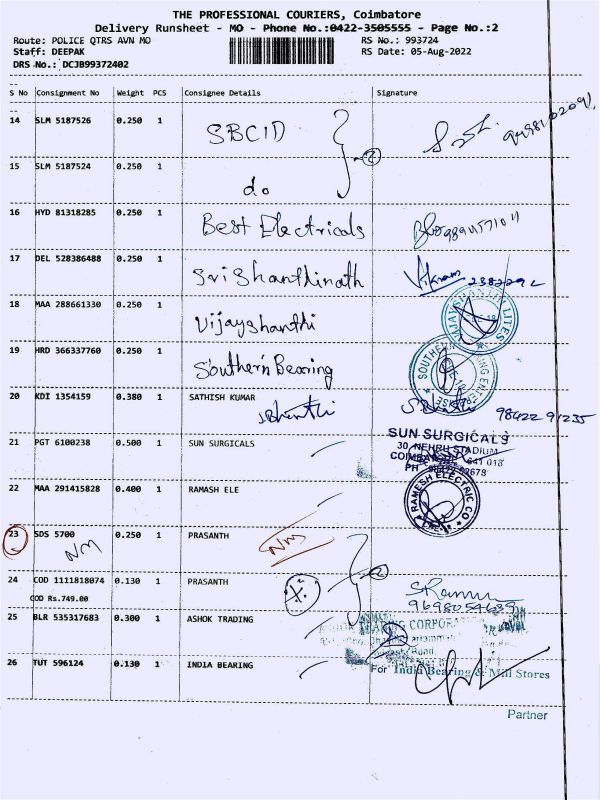 THE PROFESSIONAL COURIERS, Coimbatore
Delivery Runsheet - MO - Phone No.:0422-3505555 - Page No.:2
Route: POLICE QTRS AVN MO
RS No.: 993724
Staff: DEEPAK
RS Date: 05-Aug-2022
DRS No.: DCJB99372402
S No Consignment No Weight PCS Consignee Details Signature
14 SLM 5187526 0.250 1 SBCID
15 SLM 5187524 0.250 1 do
16 HYD 81318285 0.250 1 Best Electricals
17 DEL 528386488 0.250 1 Sri Shanthinath Vikram
18 MAA 288661330 0.250 1 Vijayshanthi
19 HRD 366337760 0.250 1 Southern Bearing
20 KDI 1354159 0.380 1 SATHISH KUMAR
98422 91235
21 PGT 6100238 0.500 1 SUN SURGICALS
SUN SURGICALS
30, NEHRU STADIUM
22 MAA 291415828 0.400 1 RAMASH ELE
RAMESH ELECTRIC CO
23 SDS 5700 0.250 1 PRASANTH
NM NM
24 COD 1111818074 0.130 1 PRASANTH
COD Rs.749.00
9698054689
25 BLR 535317683 0.300 1 ASHOK TRADING
26 TUT 596124 0.130 1 INDIA BEARING
For India Bearing & Mill Stores
Partner